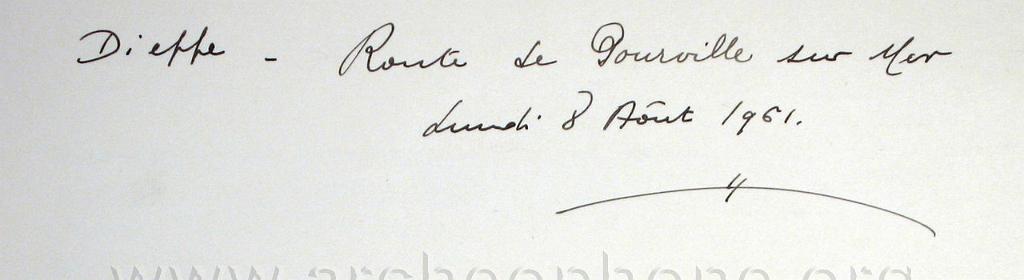 Dieppe - Route de Pourville sur Mer
Lundi 8 Août 1961.
www.archeophone.org